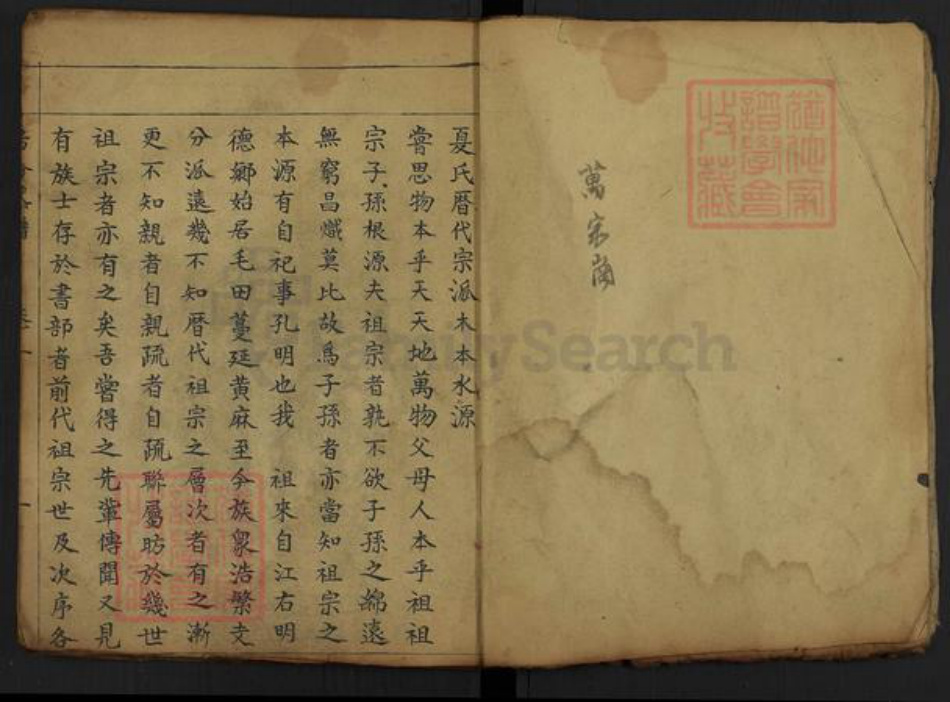 萬宗
夏氏曆代宗派木本水源
嘗思物本乎天天地萬物父母人本乎祖祖
宗子孫根源夫祖宗者孰不欲子孫之綿遠
無窮昌熾莫比故為子孫者亦當知祖宗之
本源有自祀事孔明也我 祖來自江右明
德鄉始居毛田蔓延黃麻至今族衆浩繁支
分派遠幾不知曆代祖宗之層次者有之漸
更不知親者自親疏者自疏聯屬昉於幾世
祖宗者亦有之矣吾嘗得之先輩傳聞又見
有族士存於書部者前代祖宗世及次序各
FamilySearch